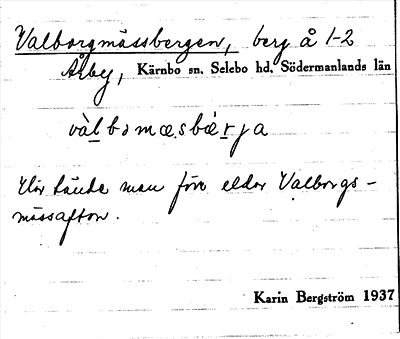 Valborgmässbergen, berg å 1-2
Åby, Kärnbo sn, Selebo hd, Södermanlands län
vàlbomæsbærja
Här tände man förr eldar Valborgs-
mässafton.
Karin Bergström 1937